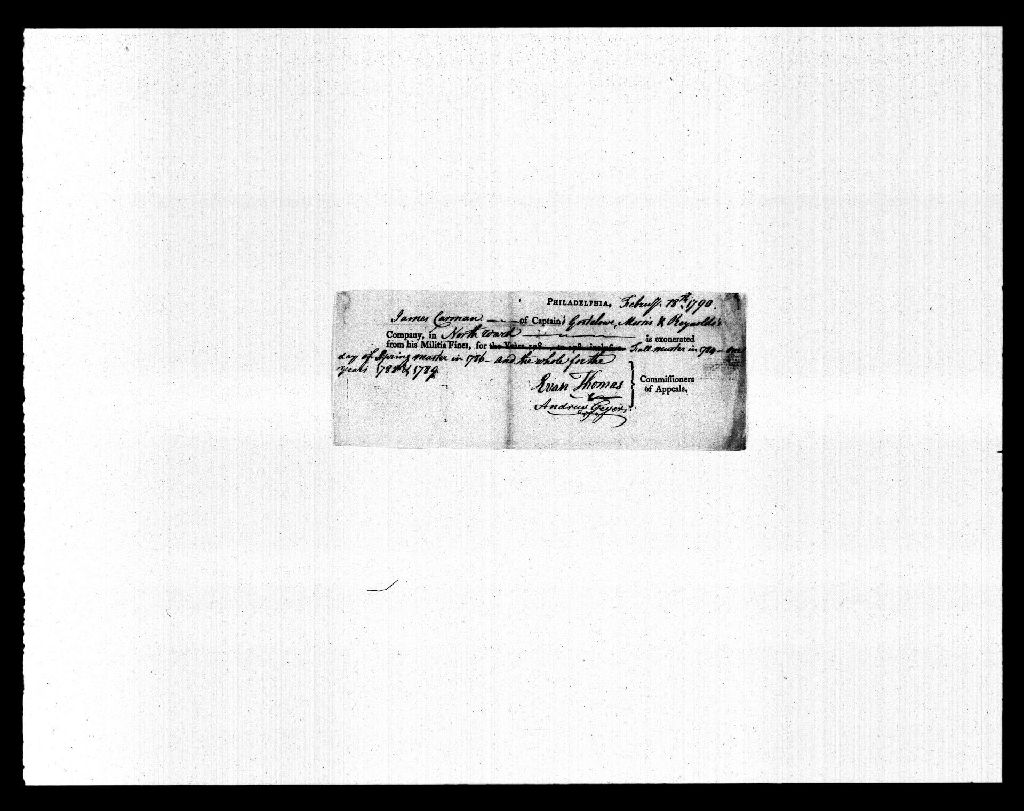 PHILADELPHIA, Februy. 18th. 1790
James Carman of Captain's Goodelow, Morris & Reynolds's
Company, in North ward is exonerated
from his Militia Fines, for the Years 178 Fall muster in 1784 - one
day of Spring muster in 1786 - and the whole for the
years 1788 & 1789.
Evan Thomas
Andrew Geyer
Commissioners
of Appeals.